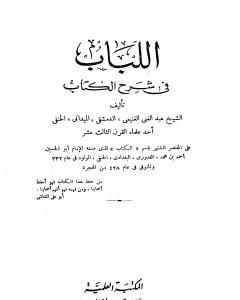 اللباب
في شرح الكتاب
تأليف
الشيخ عبد الغني الغنيمي ، الدمشقي ، الميداني ، الحنفي
أحد علماء القرن الثالث عشر
على المختصر المشتهر باسم « الكتاب » الذي صنفه الإمام أبو الحسين
أحمد بن محمد ، القدوري ، البغدادي ، الحنفي ، المولود في عام ٣٣٢
والمتوفى في عام ٤٢٨ من الهجرة
من حفظ هذا الكتاب فهو أحفظ
أصحابنا ، ومن فهمه فهو أفهم أصحابنا .
أبو علي الشاشي
المكتبة العلمية